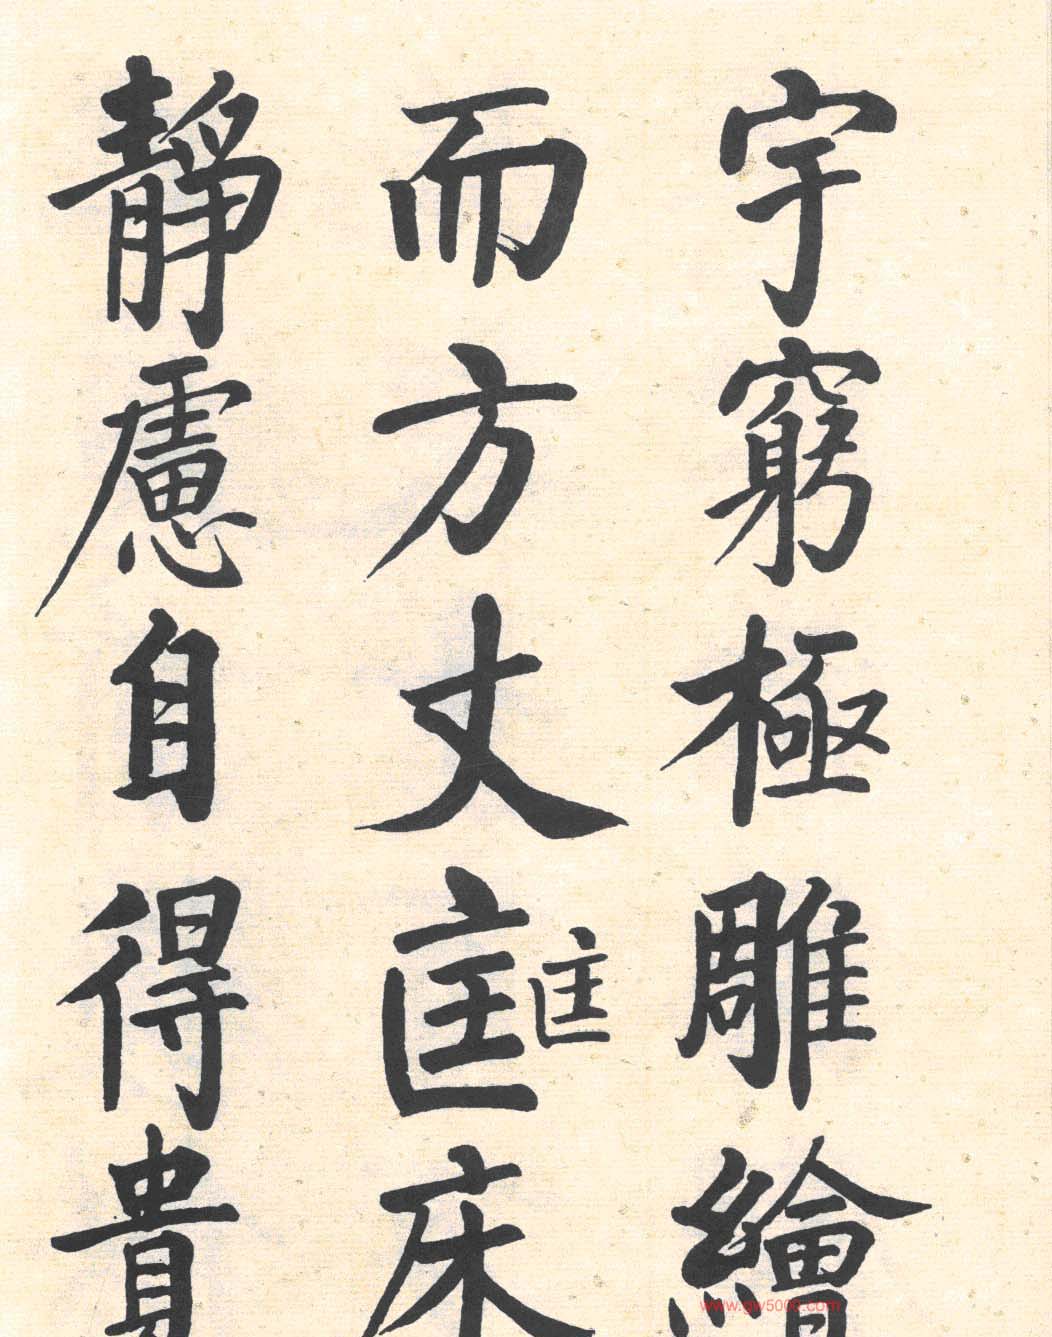 宇窮極雕繪
而方丈匡匡床
靜慮自得貴
www.gw5000.com